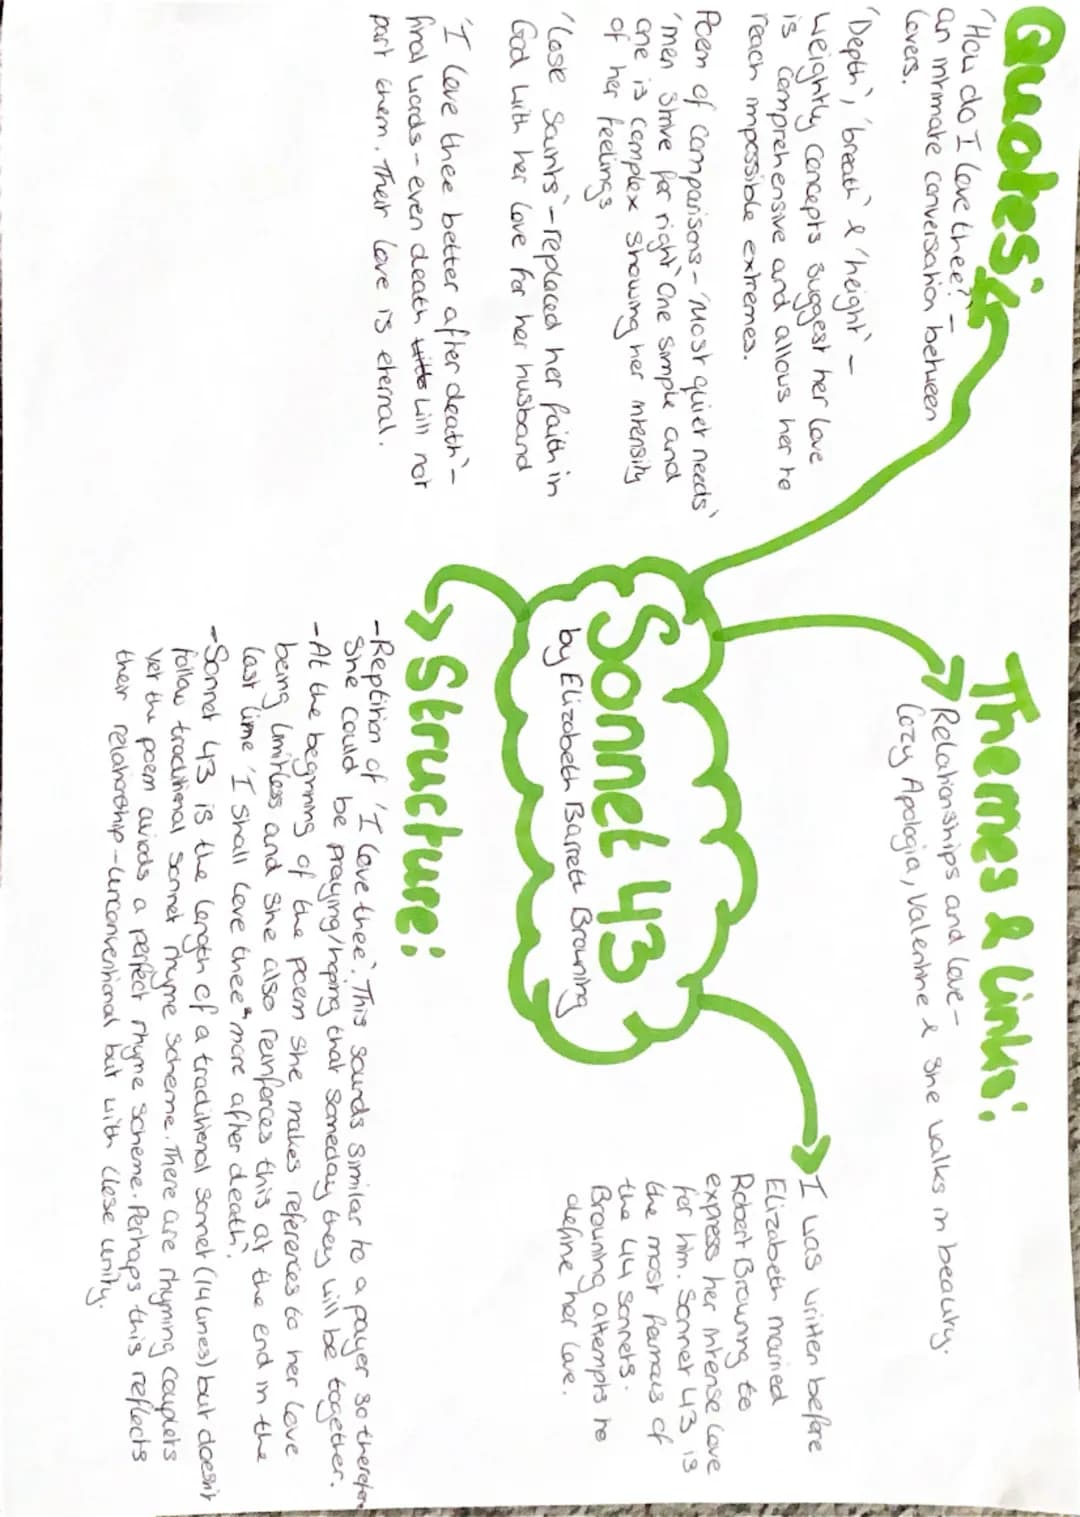 Quotes:
"How do I love thee?" -
an intimate conversation between
lovers.
'Depth', 'breath' & 'height' -
weightly concepts suggest her love
is comprehensive and allows her to
reach impossible extremes.
Poem of comparisons - 'Most quiet needs'
'men strive for right' One simple and
one is complex showing her intensity
of her feelings
'Lose Saints' - replaced her faith in
God with her love for her husband
'I love thee better after death' -
final words - even death will not
part them. Their love is eternal.
Themes & Links:
Relationships and Love -
Cozy Apologia, Valentine & She walks in beauty.
Sonnet 43
by Elizabeth Barrett Browning
I was written before
Elizabeth married
Robert Browning to
express her intense love
for him. Sonnet 43 is
the most famous of
the 44 sonnets.
Browning attempts to
define her love.
Structure:
- Reptition of 'I love thee'. This sounds similar to a payer so therefore
she could be praying/hoping that someday they will be together.
- At the beginning of the poem she makes references to her love
being limitless and she also reinforces this at the end in the
last line 'I shall love thee more after death'.
- Sonnet 43 is the length of a traditional sonnet (14 lines) but doesn't
follow traditional sonnet rhyme scheme. There are rhyming couplets
yet the poem aviods a perfect rhyme scheme. Perhaps this reflects
their relationship - unconventional but with close unity.